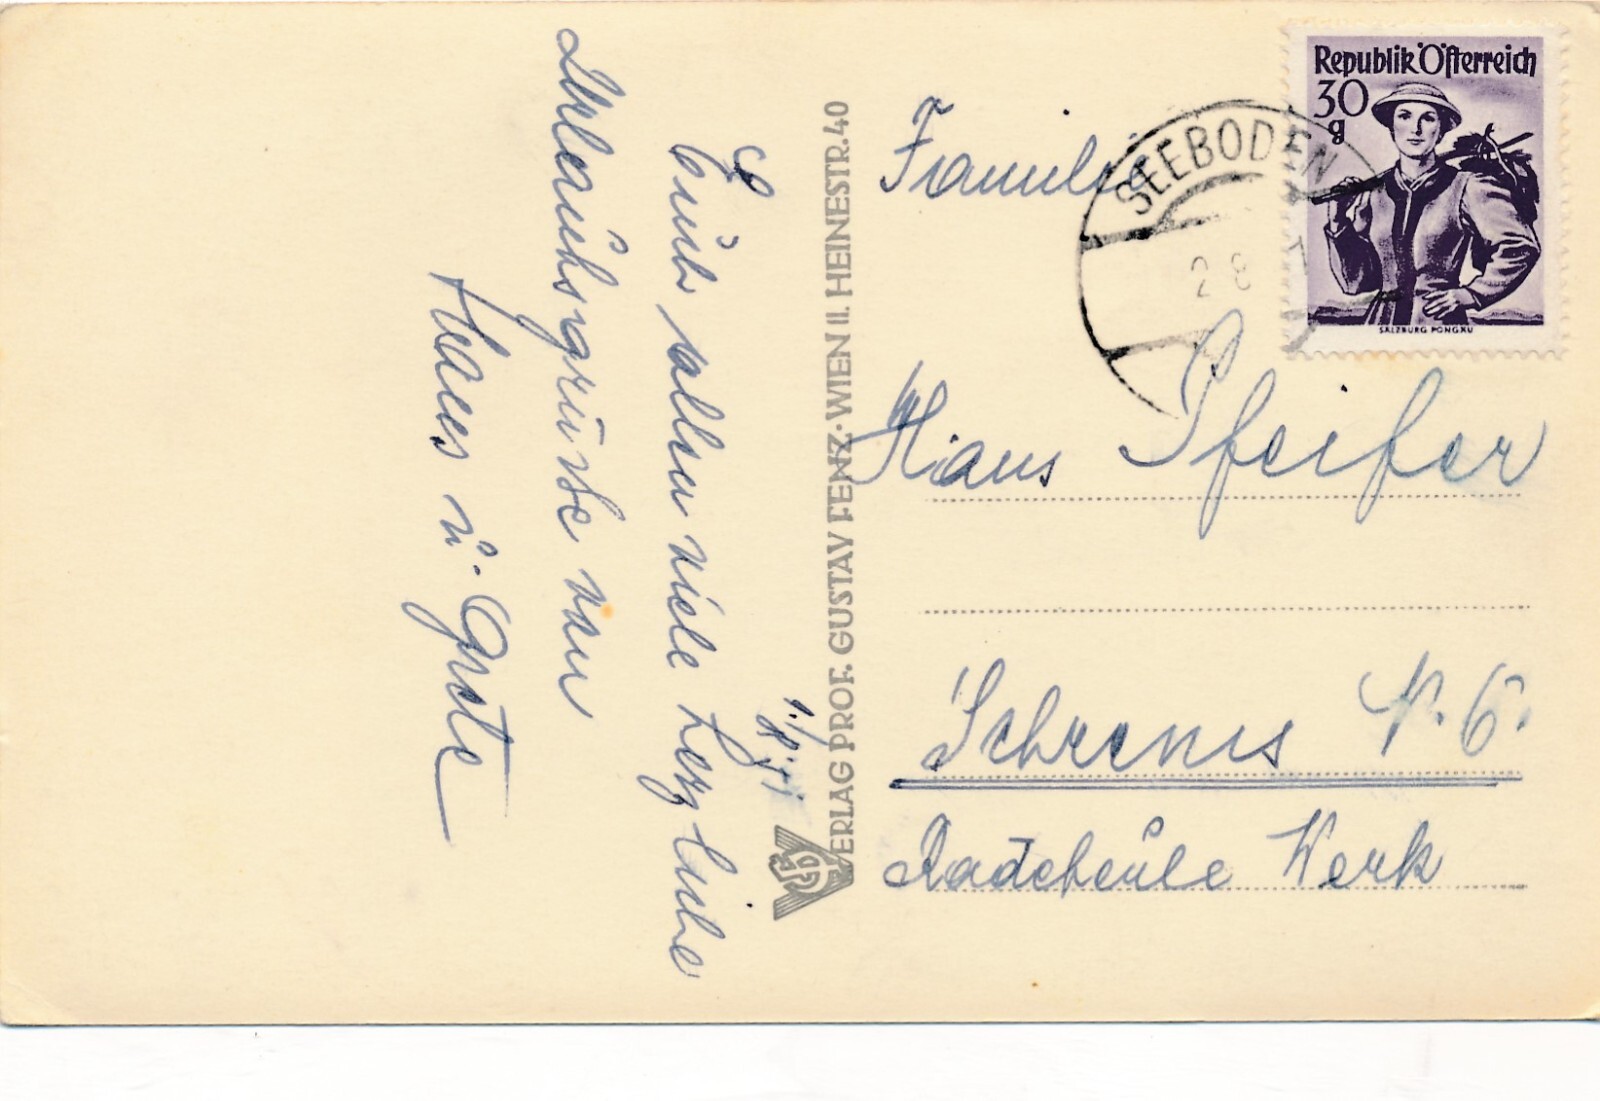 1./8.51
Euch allen viele herzliche
Urlaubsgrüsse von
Hans u. Grete
VERLAG PROF. GUSTAV FENZ·WIEN II. HEINESTR.40
Republik Österreich
30
g
SALZBURG PONGAU
SEEBODEN
2 8
Familie
Hans Pfeifer
Schrems N. Ö.
Radebeule Werk